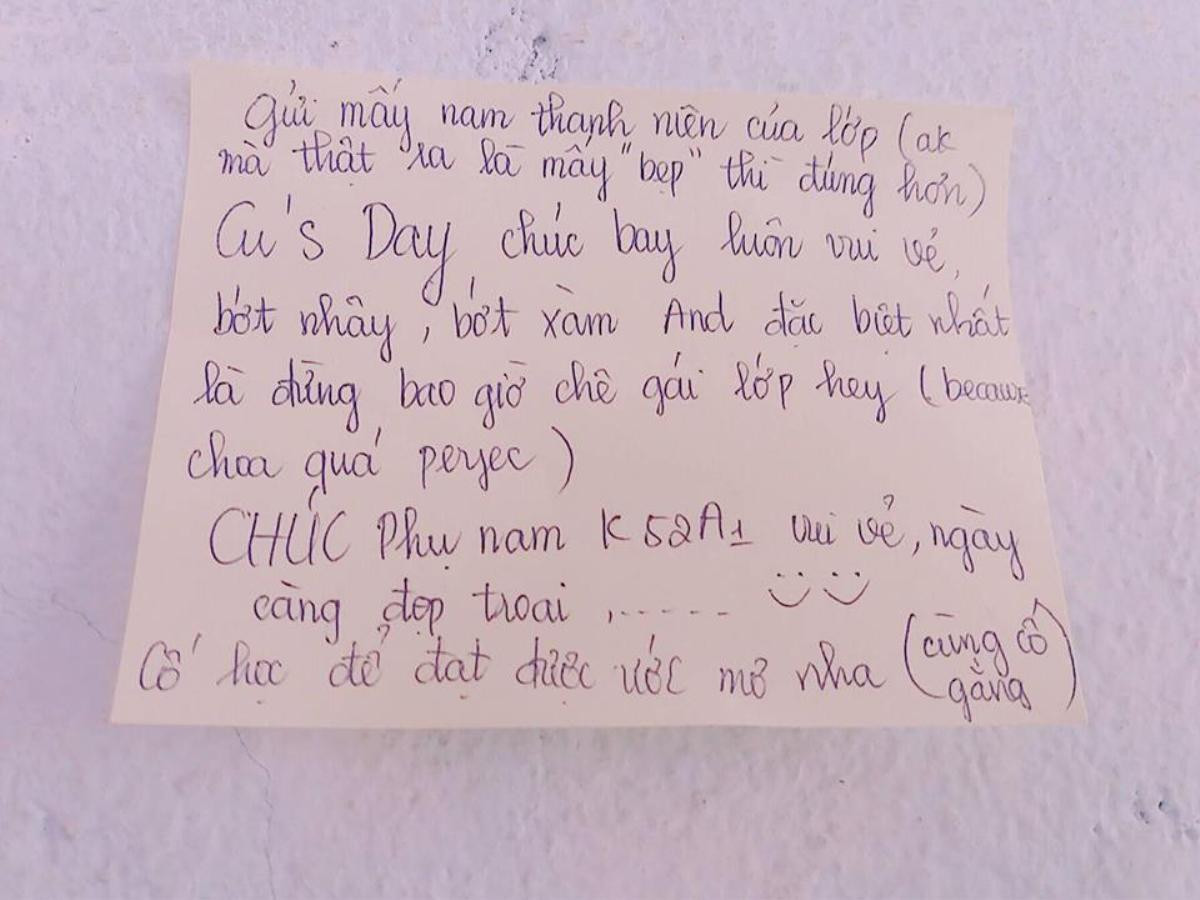 Gửi mấy nam thanh niên của lớp (ak
mà thật ra là mấy "bẹp" thì đúng hơn)
Cu's Day chúc bay luôn vui vẻ,
bớt nhây, bớt xàm And đặc biệt nhất
là đừng bao giờ chê gái lớp hey (because
choa quá perfec)
CHÚC Phụ nam K52A1 vui vẻ, ngày
càng đẹp troai ,......
Cố học để đạt được ước mơ nha (cùng cố
gắng)